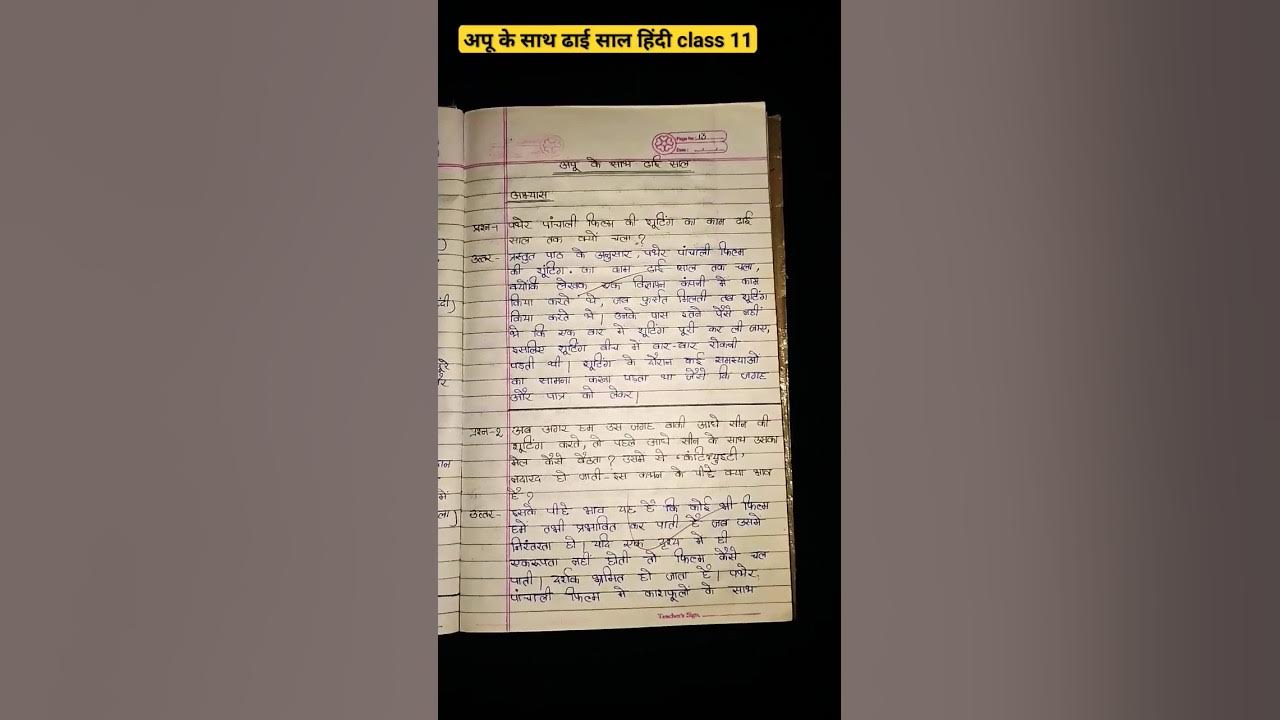 अपू के साथ ढाई साल हिंदी class 11
Page No. 13
Date:
अपू के साथ ढाई साल
अभ्यास
प्रश्न-1 पथेर पांचाली फिल्म की शूटिंग का काम ढाई
साल तक क्यों चला ?
उत्तर- प्रस्तुत पाठ के अनुसार, पथेर पांचाली फिल्म
की शूटिंग का काम ढाई साल तक चला,
क्योंकि लेखक एक विज्ञापन कंपनी में काम
किया करते थे, जब फुर्सत मिलती तब शूटिंग
किया करते थे। उनके पास इतने पैसे नहीं
थे कि एक बार में शूटिंग पूरी कर ली जाए,
इसलिए शूटिंग बीच में बार-बार रोकनी
पड़ती थी। शूटिंग के दौरान कई समस्याओ
का सामना करना पड़ता था जैसे कि जगह
और पात्र को लेकर।
प्रश्न-2 अब अगर हम उस जगह बाकी आधे सीन की
शूटिंग करते, तो पहले आधे सीन के साथ उसका
मेल कैसे बैठता ? उसमे से 'कंटिन्युइटी'
नदारद हो जाती- इस कथन के पीछे क्या भाव
है ?
उत्तर- इसके पीछे भाव यह है कि कोई भी फिल्म
हमे तभी प्रभावित कर पाती है जब उसमे
निरंतरता हो। यदि एक दृश्य मे ही
एकरूपता नहीं होती तो फिल्म कैसे चल
पाती। दर्शक भ्रमित हो जाता है। पथेर
पांचाली फिल्म मे काशफूलों के साथ
Teacher's Sign.
दी)
में
ला)